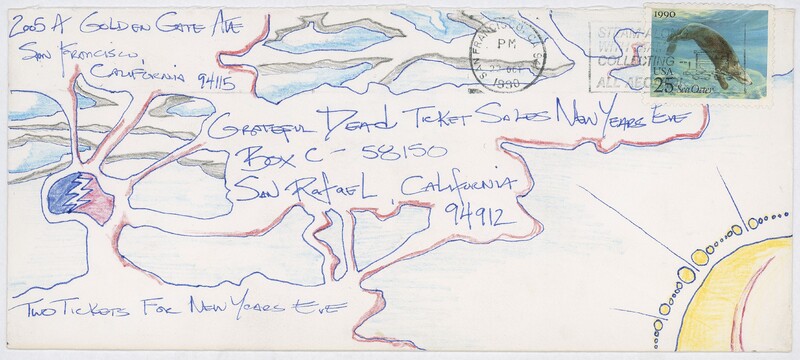 2005 A Golden Gate Ave
San Francisco,
California 94115
SAN FRANCISCO, CA
PM
22 OCT
1990
COLLECTING
1990
USA
25 Sea Otter
Grateful Dead Ticket Sales New Years Eve
Box C - 58150
San Rafael, California
94912
Two Tickets For New Years Eve